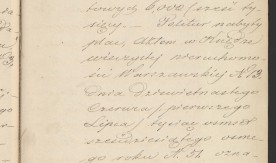 bowych 6,000 /sześć ty-
sięcy. — Petitur nabyty
plac, Aktem w Księdze
wieczystej nieruchomo-
ści Warszawskiej N 13
Dnia Dziewiętnastego
Czerwca / pierwszego
Lipca / tysiąc ośmset
sześćdziesiątego osme-
go roku N. 51. ozna-